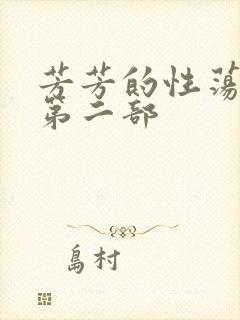 芳芳的性荡
第二部
島村